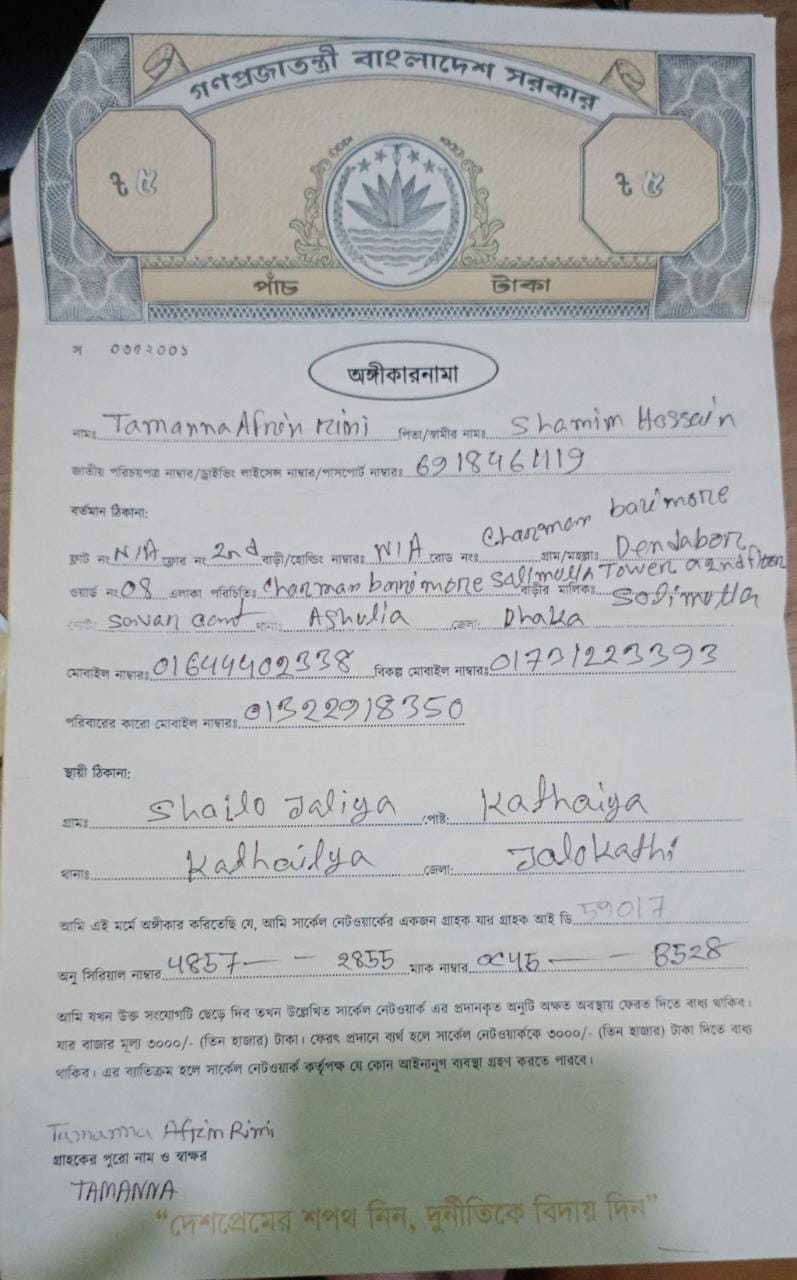 গণপ্রজাতন্ত্রী বাংলাদেশ সরকার
৳ ৫ ৳ ৫
পাঁচ টাকা
স ০৩৫২০০১
অঙ্গীকারনামা
নামঃ Tamanna Afrin Rimi পিতা/স্বামীর নামঃ Shamim Hossain
জাতীয় পরিচয়পত্র নাম্বার/ড্রাইভিং লাইসেন্স নাম্বার/পাসপোর্ট নাম্বারঃ
বর্তমান ঠিকানা:
ফ্লাট নং N/A ফ্লোর নং 2nd বাড়ী/হোল্ডিং নাম্বারঃ N/A রোড নংঃ Charman barimore গ্রাম/মহল্লাঃ Dendabor
ওয়ার্ড নং 08 এলাকা পরিচিতিঃ Charman barimore Salimulla Tower floor বাড়ীর মালিকঃ Solimulla
Savar cant থানাঃ Ashulia জেলা: Dhaka
মোবাইল নাম্বারঃ 01644402338 বিকল্প মোবাইল নাম্বারঃ 01731223393
পরিবারের কারো মোবাইল নাম্বারঃ 01322918350
স্থায়ী ঠিকানা:
গ্রামঃ Shailo Jaliya পোষ্ট: Kathaiya
থানাঃ Kathailya জেলা: Jalokathi
আমি এই মর্মে অঙ্গীকার করিতেছি যে, আমি সার্কেল নেটওয়ার্কের একজন গ্রাহক যার গ্রাহক আই ডি 59017
অনু সিরিয়াল নাম্বার 4857 - - 2855 ম্যাক নাম্বার - - B528
আমি যখন উক্ত সংযোগটি ছেড়ে দিব তখন উল্লেখিত সার্কেল নেটওয়ার্ক এর প্রদানকৃত অনুটি অক্ষত অবস্থায় ফেরত দিতে বাধ্য থাকিব।
যার বাজার মূল্য ৩০০০/- (তিন হাজার) টাকা। ফেরৎ প্রদানে ব্যর্থ হলে সার্কেল নেটওয়ার্ককে ৩০০০/- (তিন হাজার) টাকা দিতে বাধ্য
থাকিব। এর ব্যতিক্রম হলে সার্কেল নেটওয়ার্ক কর্তৃপক্ষ যে কোন আইনানুগ ব্যবস্থা গ্রহণ করতে পারবে।
Tamanna Afrin Rimi
গ্রাহকের পুরো নাম ও স্বাক্ষর
TAMANNA
“দেশপ্রেমের শপথ নিন, দুর্নীতিকে বিদায় দিন”